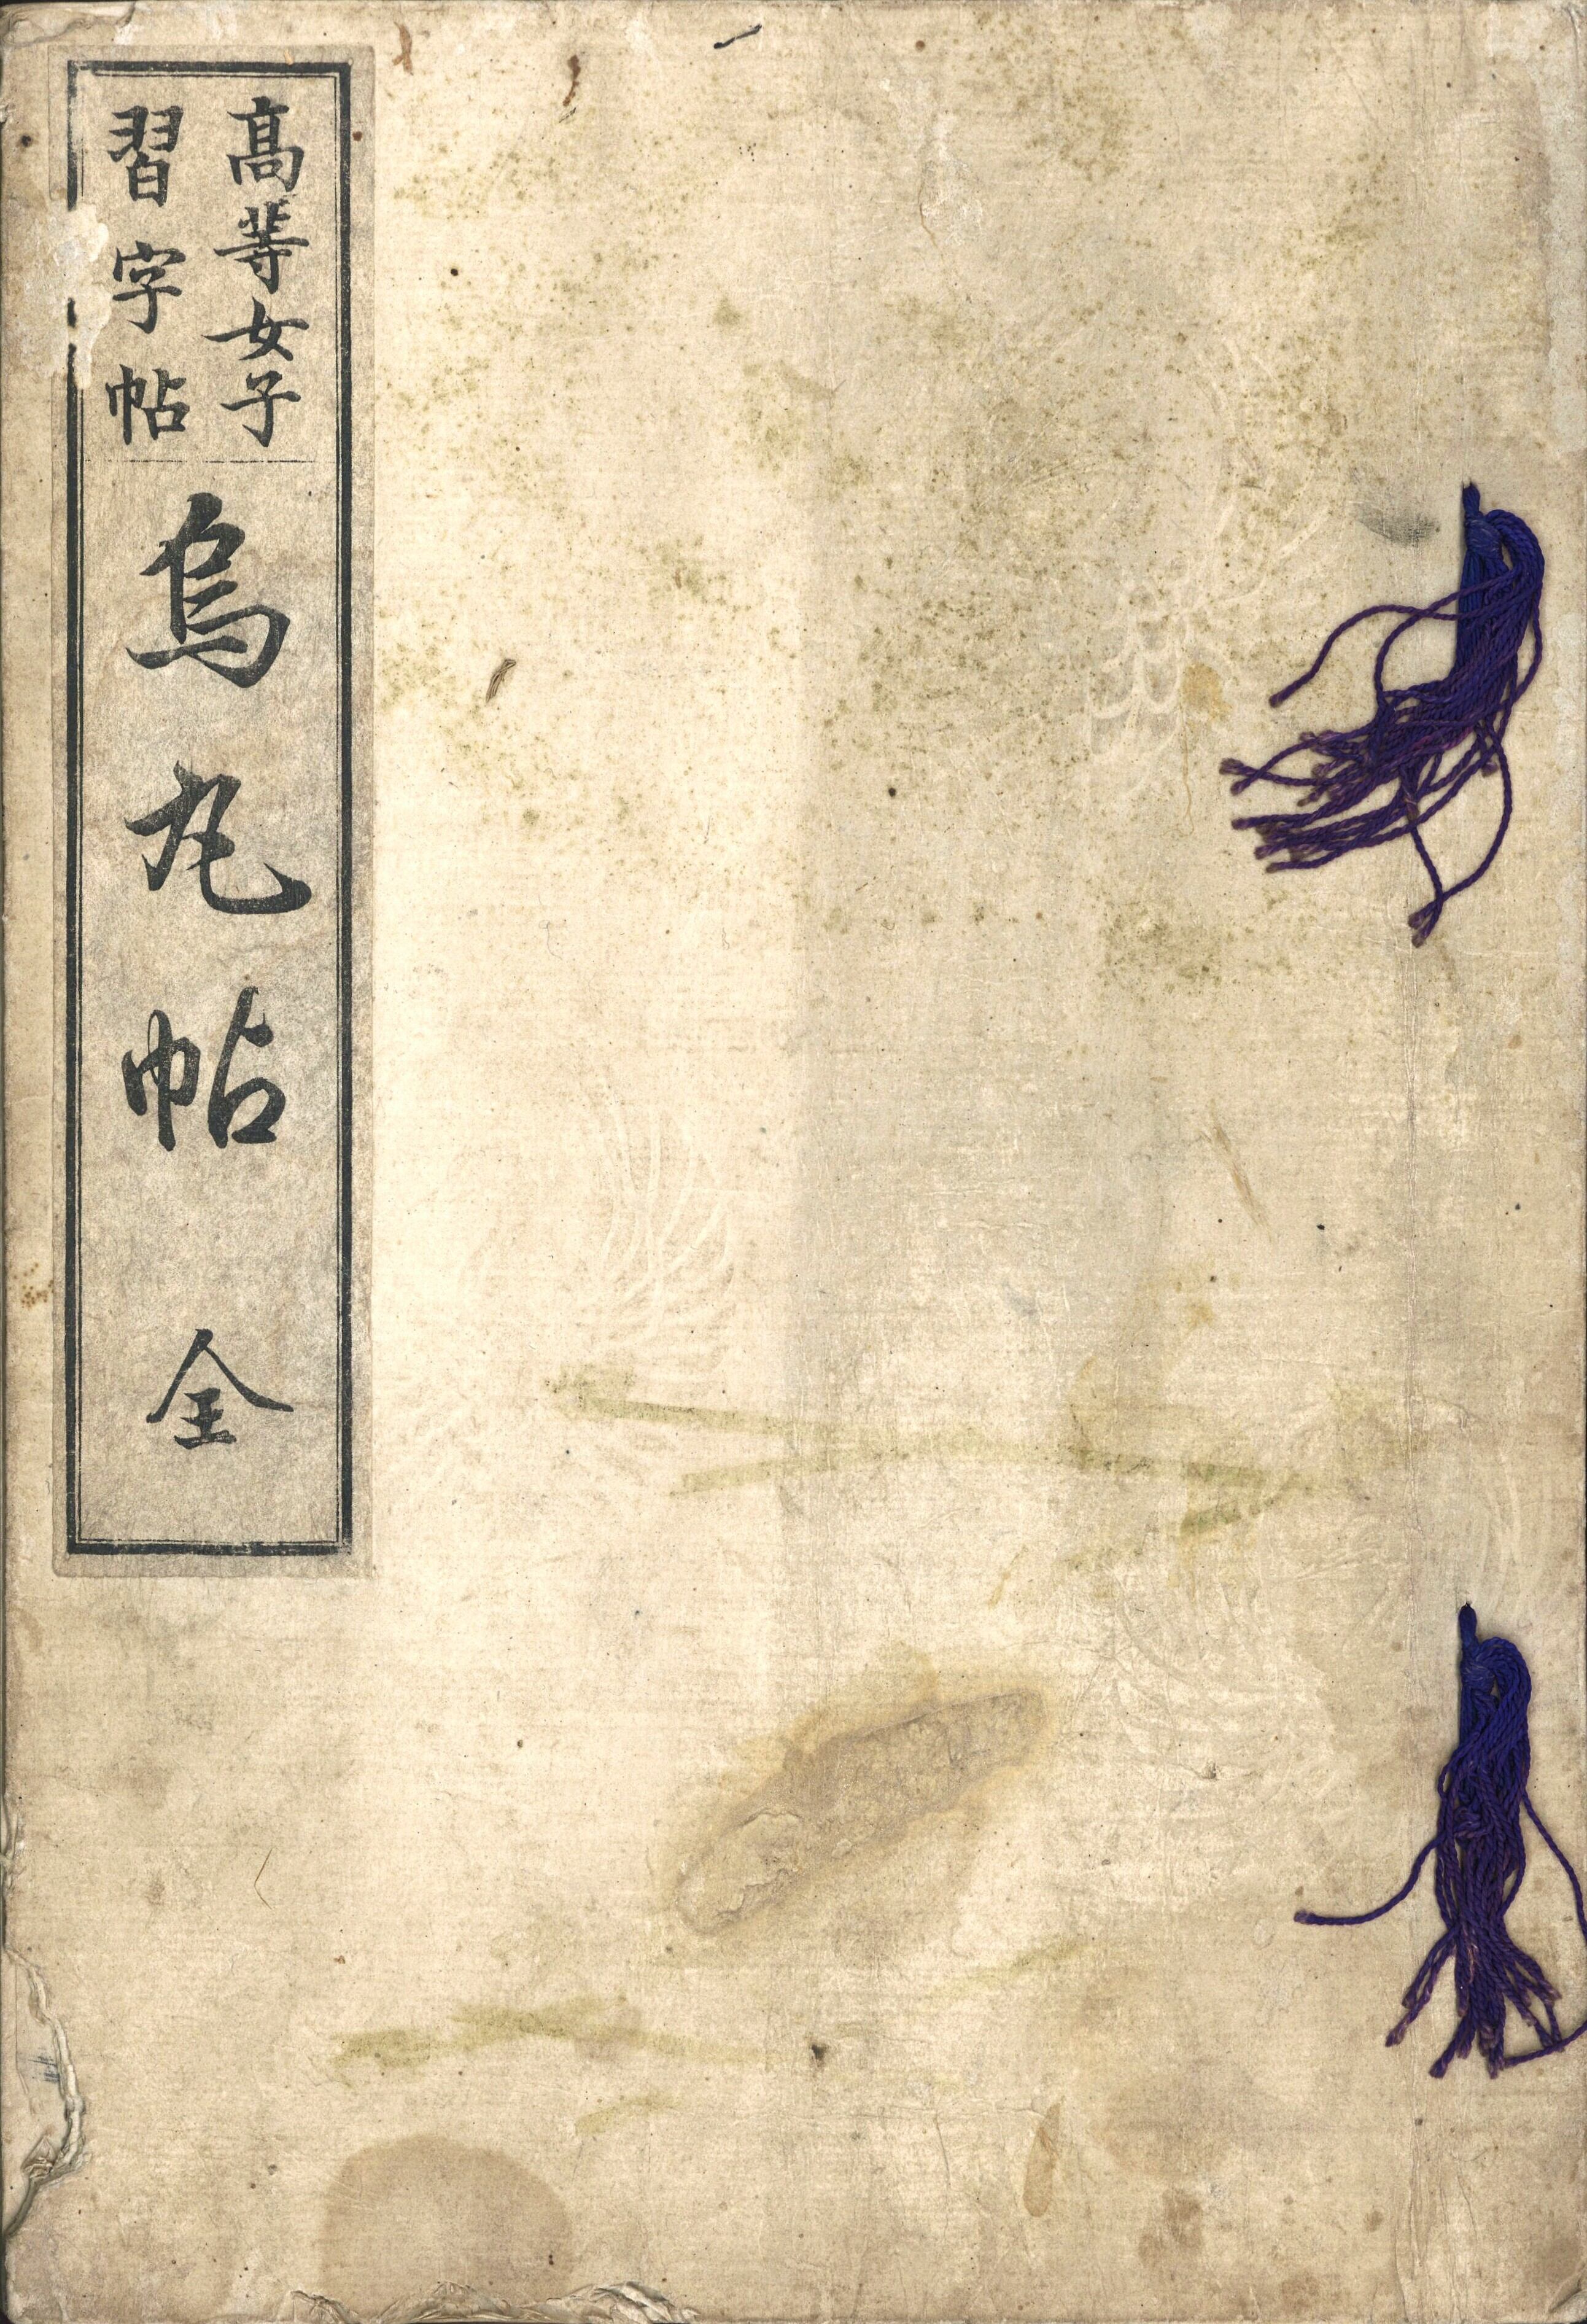 高等女子
習字帖
烏丸帖 全